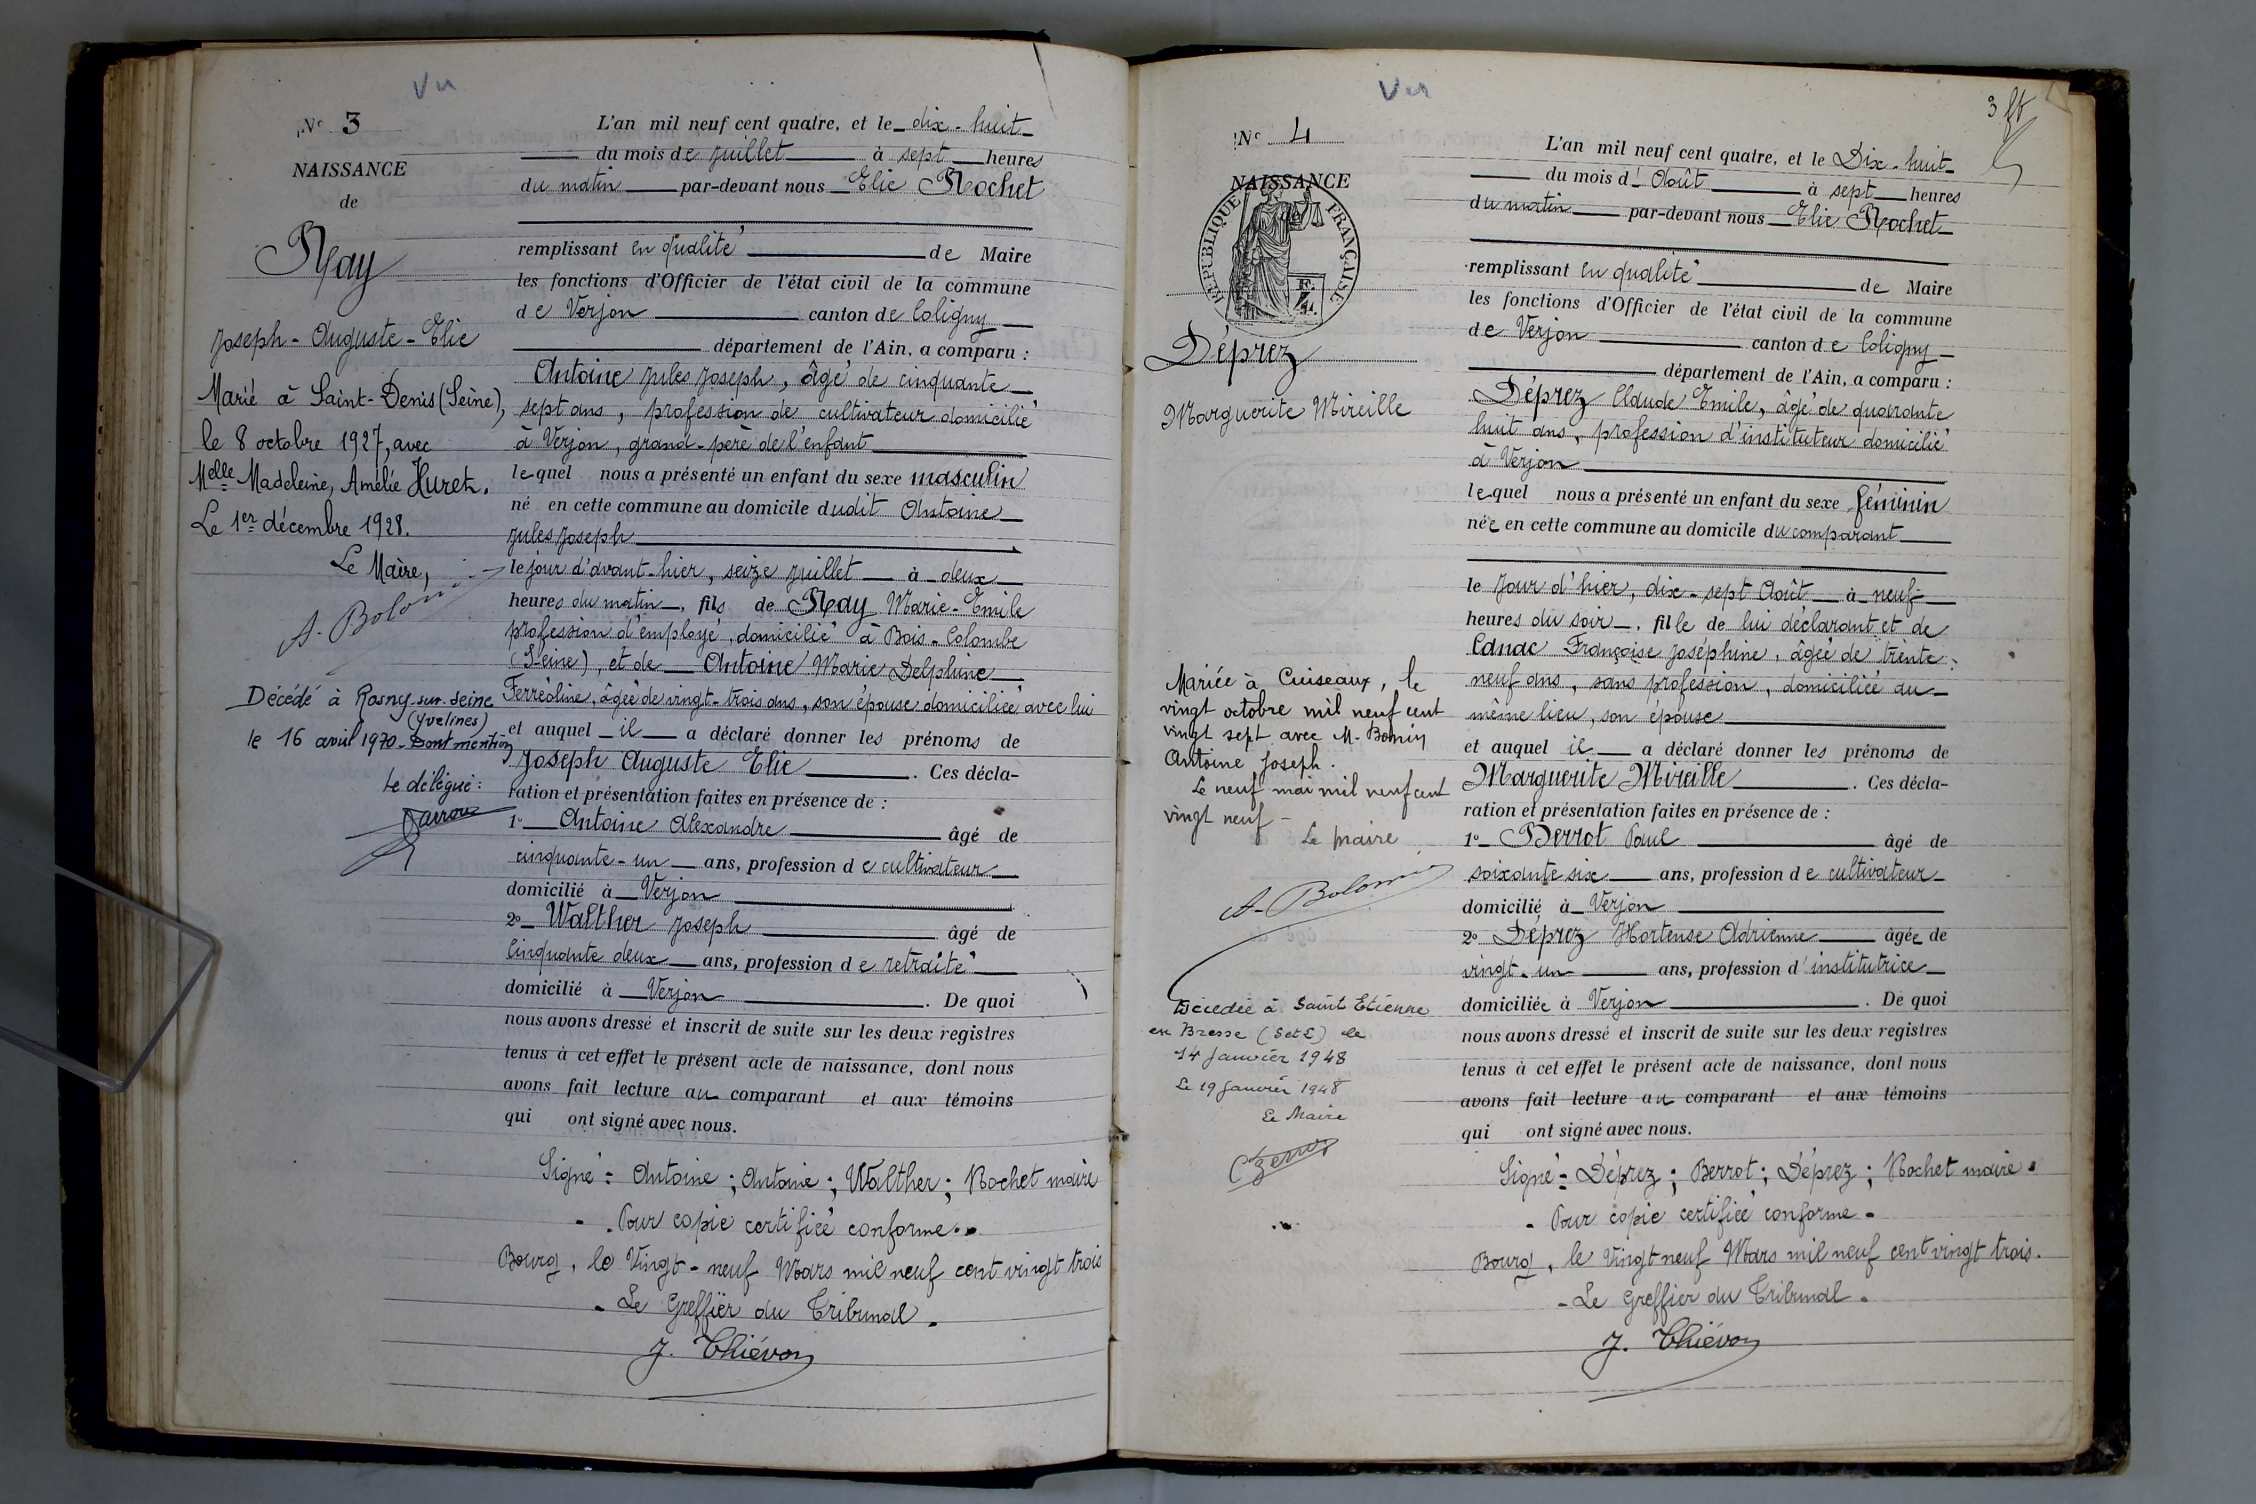 Vu
N° 3
NAISSANCE
de
Ray
Joseph-Auguste-Elie
Marié à Saint-Denis (Seine),
le 8 octobre 1927, avec
Melle Madeleine, Amélie Huret.
Le 1er décembre 1928.
Le Maire,
Décédé à Rosny-sur-Seine
(Yvelines)
le 16 avril 1970. Dont mention
Le délégué:
L'an mil neuf cent quatre, et le dix-huit
du mois de Juillet à sept heures
du matin par-devant nous Elie Rochet
remplissant en qualité de Maire
les fonctions d'Officier de l'état civil de la commune
de Verjon canton de Coligny
département de l'Ain, a comparu :
Antoine Jules Joseph, âgé de cinquante
sept ans, profession de cultivateur domicilié
à Verjon, grand-père de l'enfant
lequel nous a présenté un enfant du sexe masculin
né en cette commune au domicile dudit Antoine
Jules Joseph
le jour d'avant-hier, seize Juillet à deux
heures du matin, fils de Ray Marie-Emile
profession d'employé, domicilié à Bois-Colombe
(Seine), et de Antoine Marie Delphine
Ferréoline, âgée de vingt-trois ans, son épouse domiciliée avec lui
et auquel il a déclaré donner les prénoms de
Joseph Auguste Elie. Ces décla-
ration et présentation faites en présence de :
1° Antoine Alexandre âgé de
cinquante-un ans, profession de cultivateur
domicilié à Verjon
2° Walther Joseph âgé de
Cinquante deux ans, profession de retraité
domicilié à Verjon. De quoi
nous avons dressé et inscrit de suite sur les deux registres
tenus à cet effet le présent acte de naissance, dont nous
avons fait lecture au comparant et aux témoins
qui ont signé avec nous.
Signé: Antoine; Antoine; Walther; Rochet maire
Pour copie certifiée conforme.
Bourg, le Vingt-neuf Mars mil neuf cent vingt trois
Le Greffier du Tribunal.
J. Thiévon
Vu
N° 4
NAISSANCE
RÉPUBLIQUE FRANÇAISE
Déprez
Marguerite Mireille
Mariée à Cuiseaux, le
vingt octobre mil neuf cent
vingt sept avec M.
Antoine Joseph.
Le neuf mai mil neuf cent
vingt neuf
Le maire
Décédée à Saint Etienne
en Bresse (S et L) le
14 Janvier 1948
Le 19 Janvier 1948
Le Maire
L'an mil neuf cent quatre, et le Dix-huit
du mois d'Août à sept heures
du matin par-devant nous Elie Rochet
remplissant en qualité de Maire
les fonctions d'Officier de l'état civil de la commune
de Verjon canton de Coligny
département de l'Ain, a comparu :
Déprez Claude Emile, âgé de quarante
huit ans, profession d'instituteur domicilié
à Verjon
lequel nous a présenté un enfant du sexe féminin
née en cette commune au domicile du comparant
le Jour d'hier, dix-sept Août à neuf
heures du soir, fille de lui déclarant et de
Canac Françoise Joséphine, âgée de trente-
neuf ans, sans profession, domiciliée au
même lieu, son épouse
et auquel il a déclaré donner les prénoms de
Marguerite Mireille. Ces décla-
ration et présentation faites en présence de :
1° Berrot Paul âgé de
soixante six ans, profession de cultivateur
domicilié à Verjon
2° Déprez Hortense Adrienne âgée de
vingt-un ans, profession d'institutrice
domiciliée à Verjon. De quoi
nous avons dressé et inscrit de suite sur les deux registres
tenus à cet effet le présent acte de naissance, dont nous
avons fait lecture au comparant et aux témoins
qui ont signé avec nous.
Signé: Déprez; Berrot; Déprez; Rochet maire.
Pour copie certifiée conforme
Bourg, le Vingt neuf Mars mil neuf cent vingt trois.
Le Greffier du Tribunal.
J. Thiévon